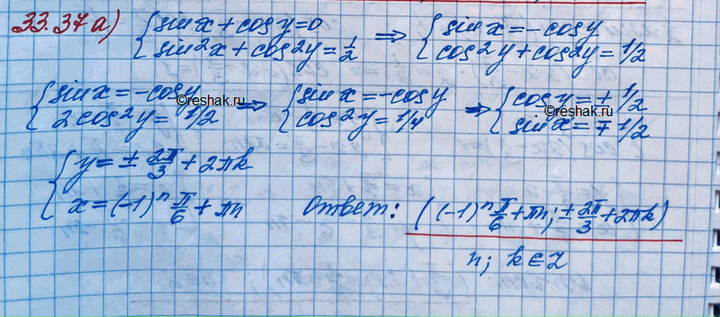 33.37а) { sin x + cos y = 0 ⇒ { sin x = -cos y
sin²x + cos²y = 1/2 cos²y + cos²y = 1/2
{ sin x = -cos y ⇒ { sin x = -cos y ⇒ { cos y = ± 1/2
2cos²y = 1/2 cos²y = 1/4 sin x = ∓ 1/2
©reshak.ru ©reshak.ru
{ y = ± 2π/3 + 2πk
x = (-1)ⁿ π/6 + πn ответ: ((-1)ⁿ π/6 + πn; ± 2π/3 + 2πk)
n; k ∈ Z